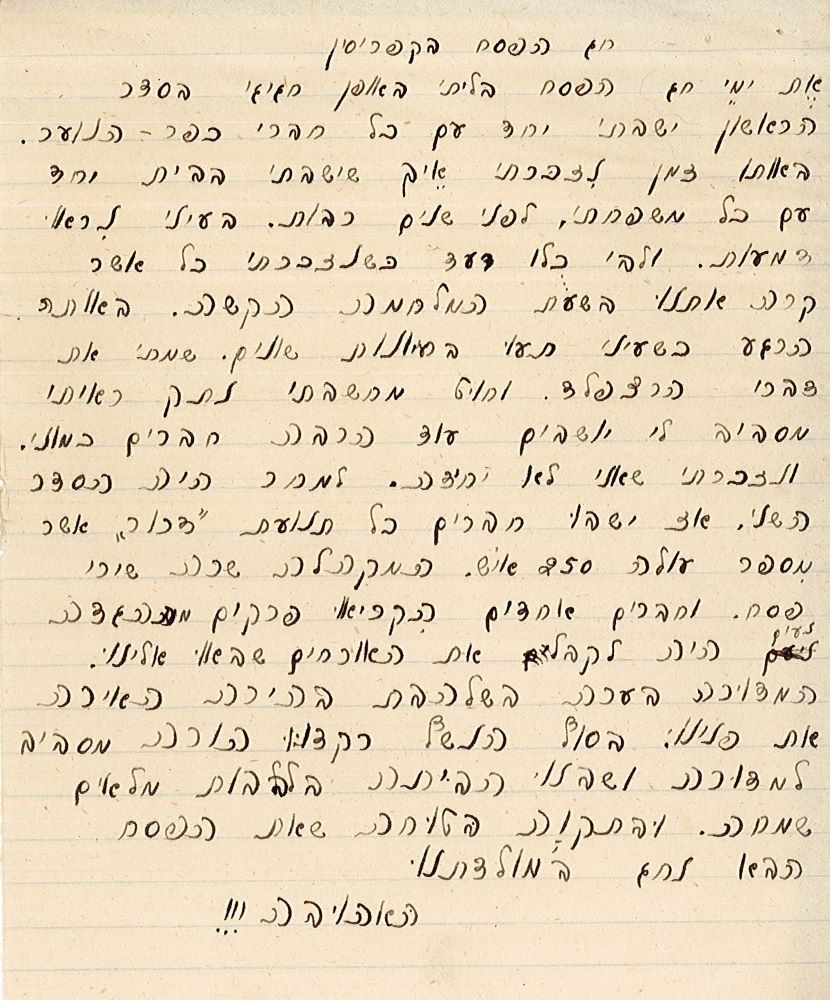 חג הפסח בקפריסין
את ימי חג הפסח בליתי באופן חגיגי בסדר
הראשון ישבתי יחד עם כל חברי כפר - הנוער.
באותו זמן נזכרתי איך שישבתי בבית יחד
עם כל משפחתי, לפני שנים רבות. בעיני נראו
דמעות. ולבי כלו רעד כשנזכרתי כל אשר
קרה אתנו בשעת המלחמה הקשה. באותה
הרגע כשעיני תעו בחזיונות שונים. שמתי את
דברי הרצפלד. וחוט מחשבתי נתק ראיתי
מסביב לי יושבים עוד הרבה חברים כמוני.
ונזכרתי שאני לא יחידה. למחר היה הסדר
השני. אז ישבו חברים כל תנועת "דרור" אשר
מספר עולה 250 איש. המקהלה שרה שירי
פסח. וחברים אחדים הקריאו פרקים מההגדה
נעים
היה לקבל את האורחים שבאו אלינו.
המדורה בערה בשלהבת בהירה האירה
את פנינו. בסוף הנשף רקדנו הורה מסביב
למדורה ושבנו הביתה בלבבות מלאים
שמחה. ובתקוה בטוחה שאת הפסח
הבא נחג במולדתנו
האהובה !!!